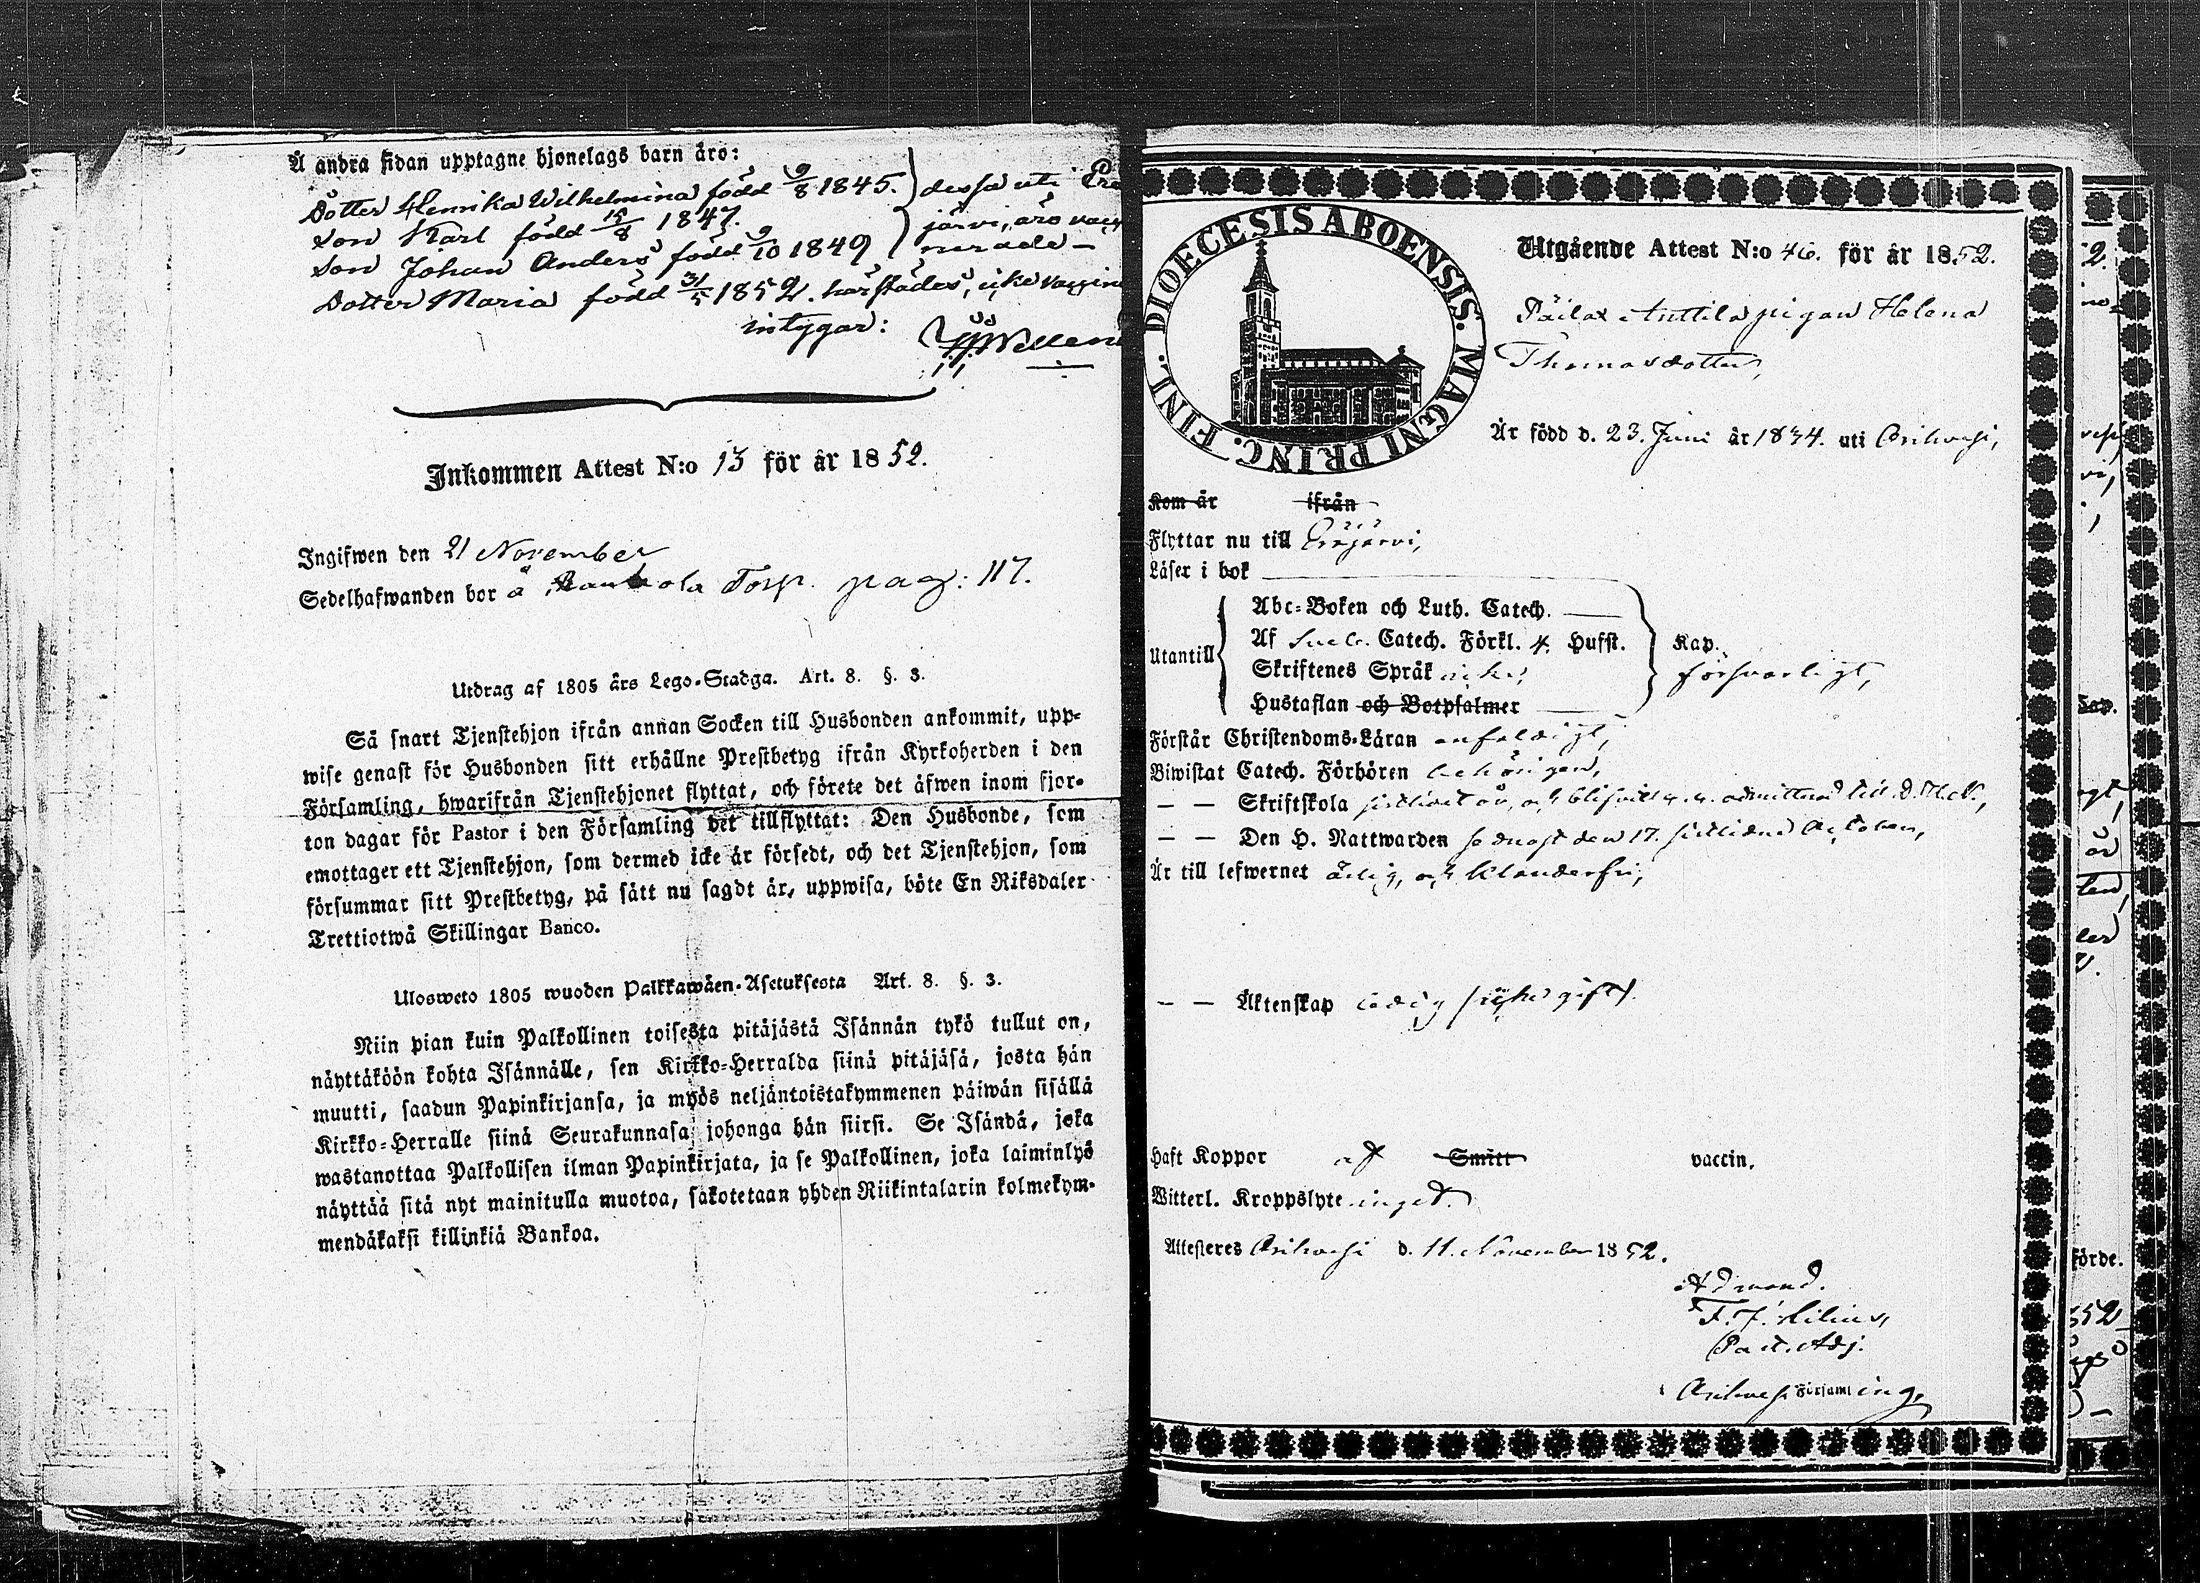 Å andra sidan upptagne hjonelags barn äro:
Dotter Henrika Wilhelmina född 9/8 1845. dessa uti
Son Karl född 15/8 1847. järvi, äro
Son Johan Anders född 9/10 1849
Dotter Maria född 31/5 1852. härstädes, icke
intygar:
Inkommen Attest N:o 13 för år 1852.
Ingifwen den 21 November
Sedelhafwanden bor å Torp. pag: 117.
Utdrag af 1805 års Lego-Stadga. Art. 8. §. 3.
Så snart Tjenstehjon ifrån annan Socken till Husbonden ankommit, upp-
wise genast för Husbonden sitt erhållne Prestbetyg ifrån Kyrkoherden i den
Församling, hwarifrån Tjenstehjonet flyttat, och förete det äfwen inom fjor-
ton dagar för Pastor i den Församling det tillflyttat: Den Husbonde, som
emottager ett Tjenstehjon, som dermed icke är försedt, och det Tjenstehjon, som
försummar sitt Prestbetyg, på sätt nu sagdt är, uppwisa, böte En Riksdaler
Trettiotwå Skillingar Banco.
Ulosweto 1805 wuoden Palkkawäen-Asetuksesta Art. 8. §. 3.
Niin pian kuin Palkollinen toisesta pitäjästä Isännän tykö tullut on,
näyttäköön kohta Isännälle, sen Kirkko-Herralda siinä pitäjäsä, josta hän
muutti, saadun Papinkirjansa, ja myös neljäntoistakymmenen päiwän sisällä
Kirkko-Herralle siinä Seurakunnasa johonga hän siirsi. Se Isändä, joka
wastanottaa Palkollisen ilman Papinkirjata, ja se Palkollinen, joka laiminlyö
näyttää sitä nyt mainitulla muotoa, sakotetaan yhden Riikintalarin kolmekym-
mendäkaksi killinkiä Bankoa.
DIOECESIS ABOENSIS. MAGNI PRINC. FINL.
Utgående Attest N:o 46. för år 1852.
Päilax Anttila pigan Helena
Thomasdotter,
Är född d. 23. Juni år 1834. uti Orihvesi,
Kom år ifrån
Flyttar nu till Eräjärvi,
Läser i bok
Abc-Boken och Luth. Catech.
Utantill Af Sveb. Catech. Förkl. 4. Hufst. Kap.
Skriftenes Språk icke, försvarligt,
Hustaflan och Botpsalmer
Förstår Christendoms-Läran enfaldigt,
Biwistat Catech. Förhören behörigen,
— — Skriftskola sistlidet år, och blifvit admitterad till d. H. N.,
— — Den H. Nattwarden senast den 17. sistlidne October,
Är till lefwernet ärlig, och klanderfri,
— — Äktenskap ledig (icke gift).
Haft Koppor af Smitt vaccin.
Witterl. Kroppslyte inget.
Attesteres Orihvesi d. 11. November 1852.
F. J. Lilius,
Past. Adj.
i Orihvesi Församling.